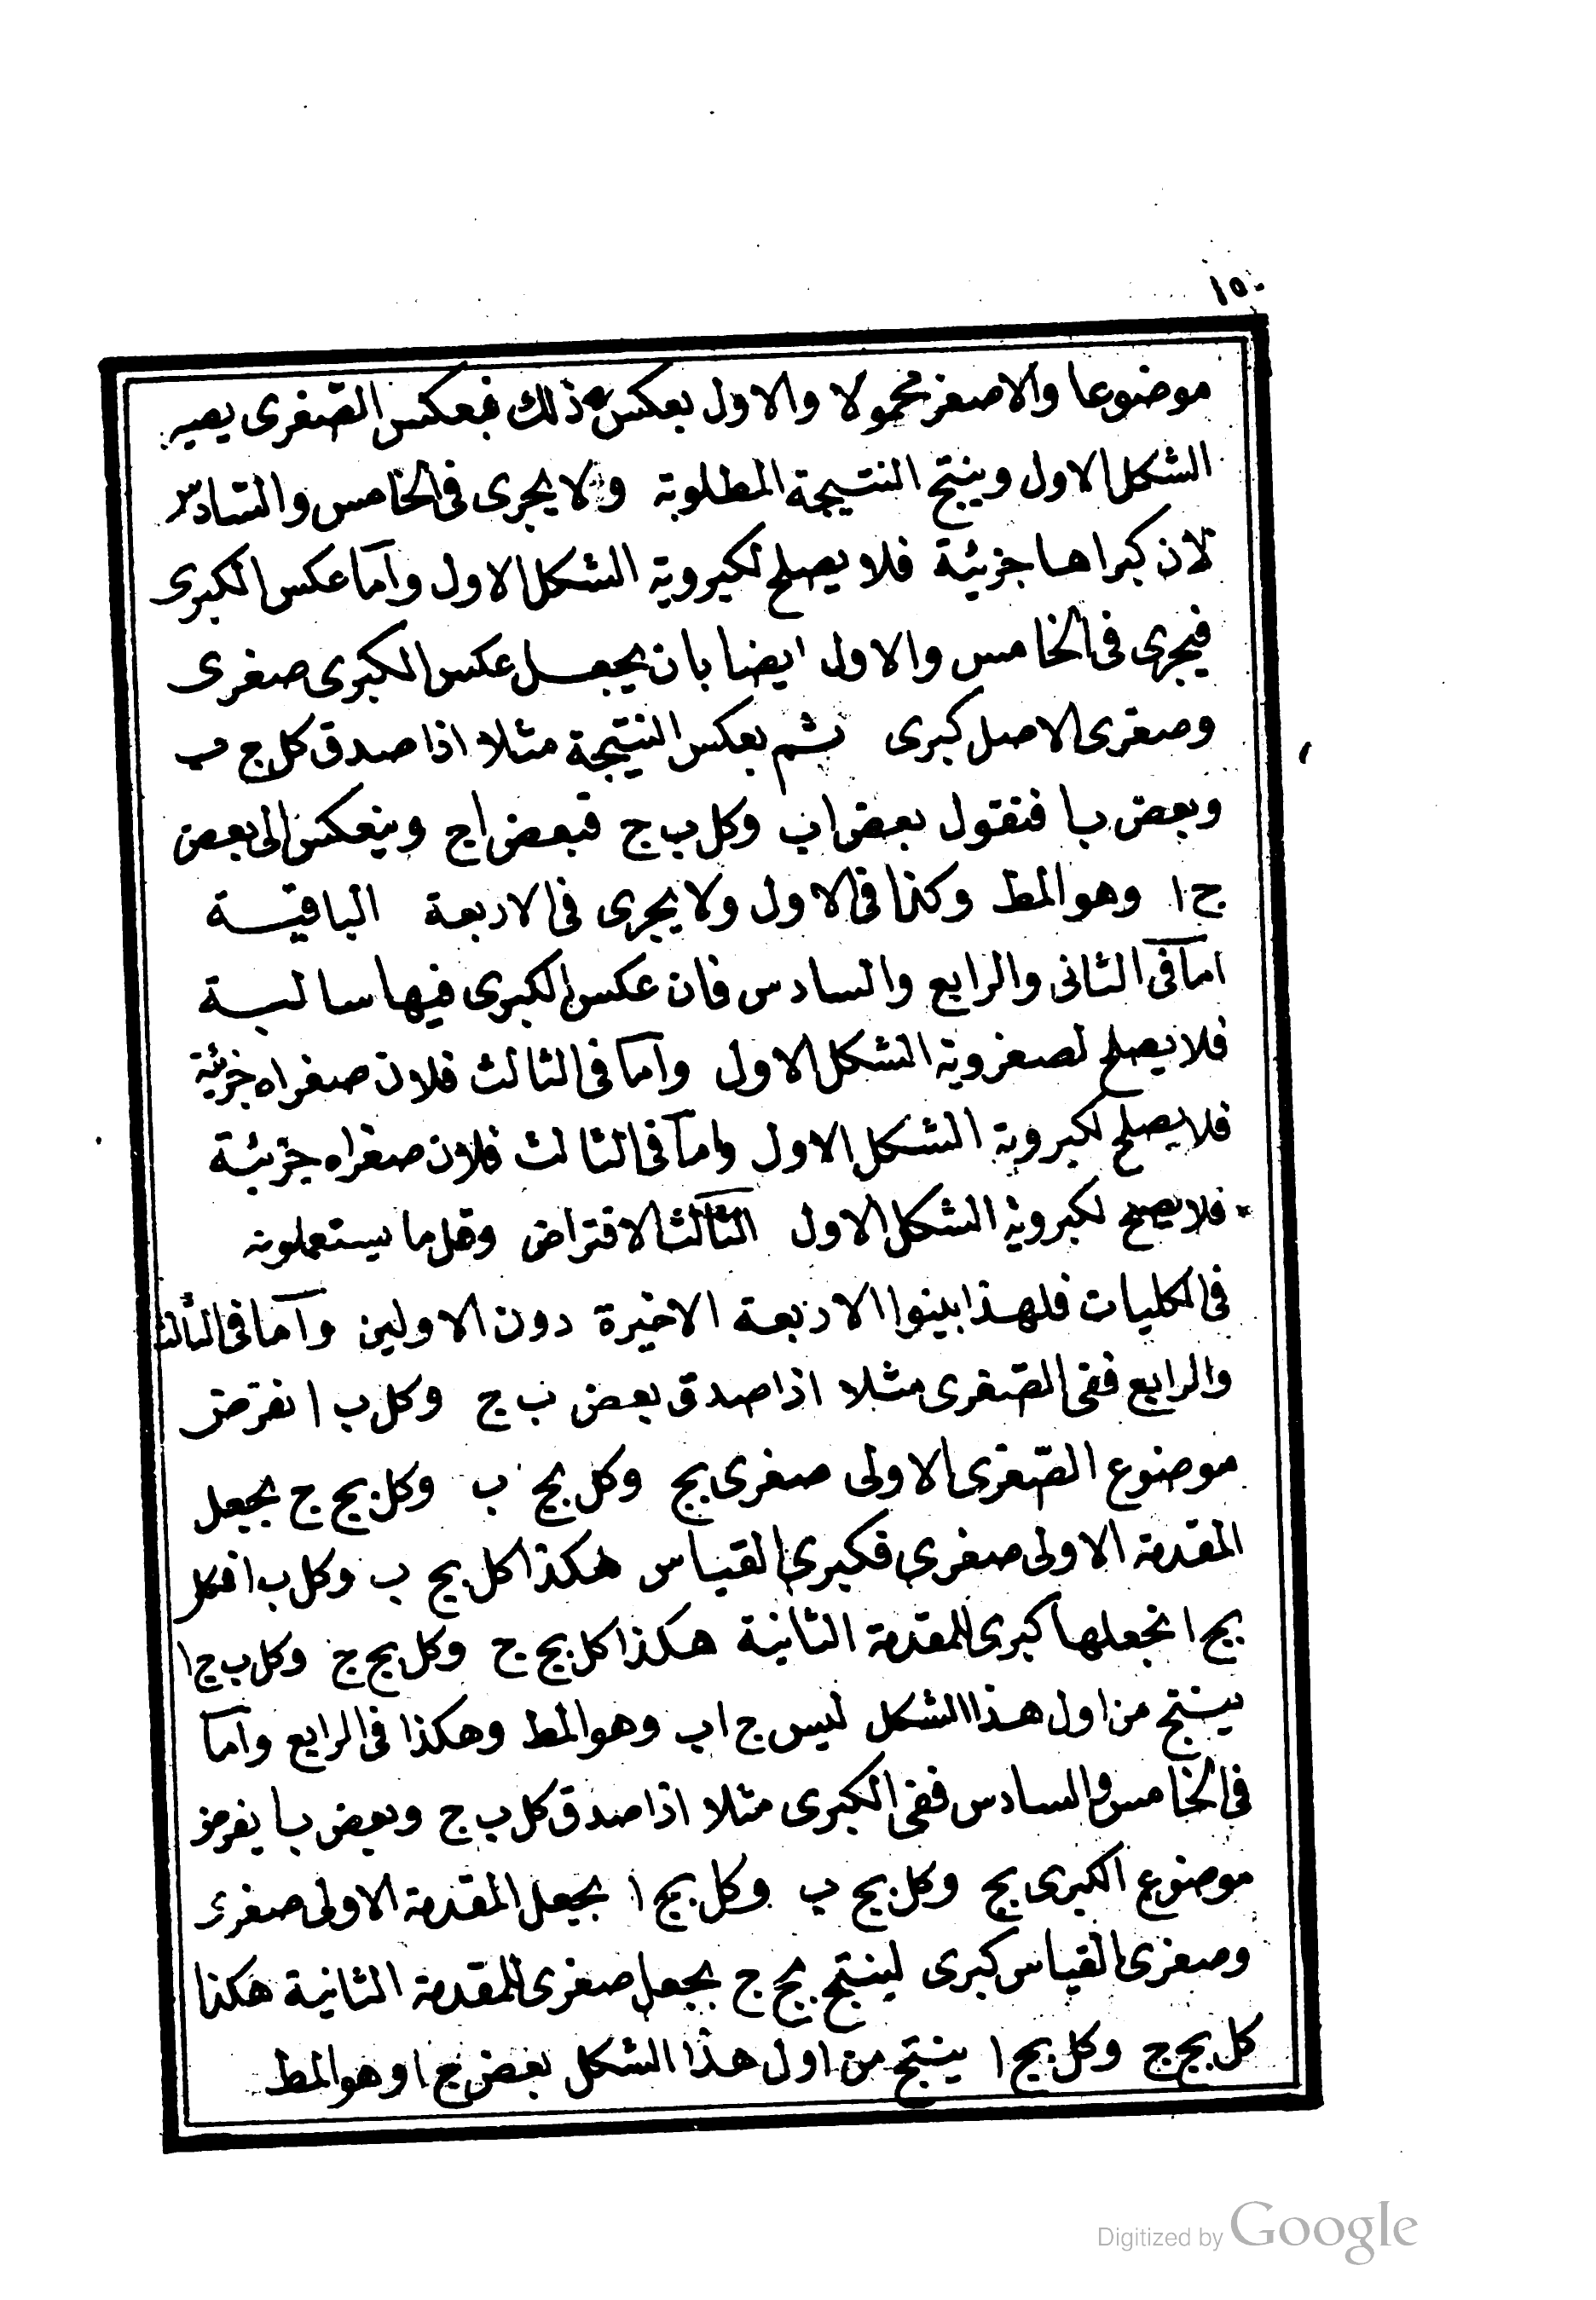 ١٥٠
موضوعا والاصغر محمولا والاول بعكس ذلك فبعكس الصغرى يصير
الشكل الاول وينتج النتيجة المطلوبة ولا يجرى فى الخامس والسادس
لان كبراها جزئية فلا يصلح لكبروية الشكل الاول واما عكس الكبرى
فيجرى فى الخامس والاول ايضا بان يجعل عكس الكبرى صغرى
وصغرى الاصل كبرى ثم بعكس النتيجة مثلا اذا صدق كل ج ب
وبعض ب ا فنقول بعض ا ب وكل ب ج فبعض ا ج وينعكس الى بعض
ج ا وهو المط وكذا فى الاول ولا يجرى فى الاربعة الباقية
اما فى الثانى والرابع والسادس فان عكس الكبرى فيها سالبة
فلا يصلح لصغروية الشكل الاول واما فى الثالث فلان صغراه جزئية
فلا يصلح لكبروية الشكل الاول واما فى الثالث فلان صغراه جزئية
فلا يصح لكبروية الشكل الاول الثالث الافتراض وقل ما يستعملونه
فى الكليات فلهذا بينوا الاربعة الاخيرة دون الاولين واما فى الثالث
والرابع ففى الصغرى مثلا اذا صدق بعض ب ج وكل ب ا نفرض
موضوع الصغرى الاولى صغرى بج وكل بج ب وكل بج ج يجعل
المقدمة الاولى صغرى فكبرى القياس هكذا كل بج ب وكل ب ا فكل
بج ا نجعلها كبرى للمقدمة الثانية هكذا كل بج ج وكل بج ج وكل ب ج ا
ينتج من اول هذا الشكل ليس ج ا ب وهو المط وهكذا فى الرابع واما
فى الخامس والسادس ففى الكبرى مثلا اذا صدق كل ب ج وبعض ب ا يفرض
موضوع الكبرى بج وكل بج ب وكل بج ا يجعل المقدمة الاولى صغرى
وصغرى القياس كبرى لينتج بج ج يجعل صغرى للمقدمة الثانية هكذا
كل بج ج وكل بج ا ينتج من اول هذا الشكل بعض ج ا وهو المط
Digitized by Google